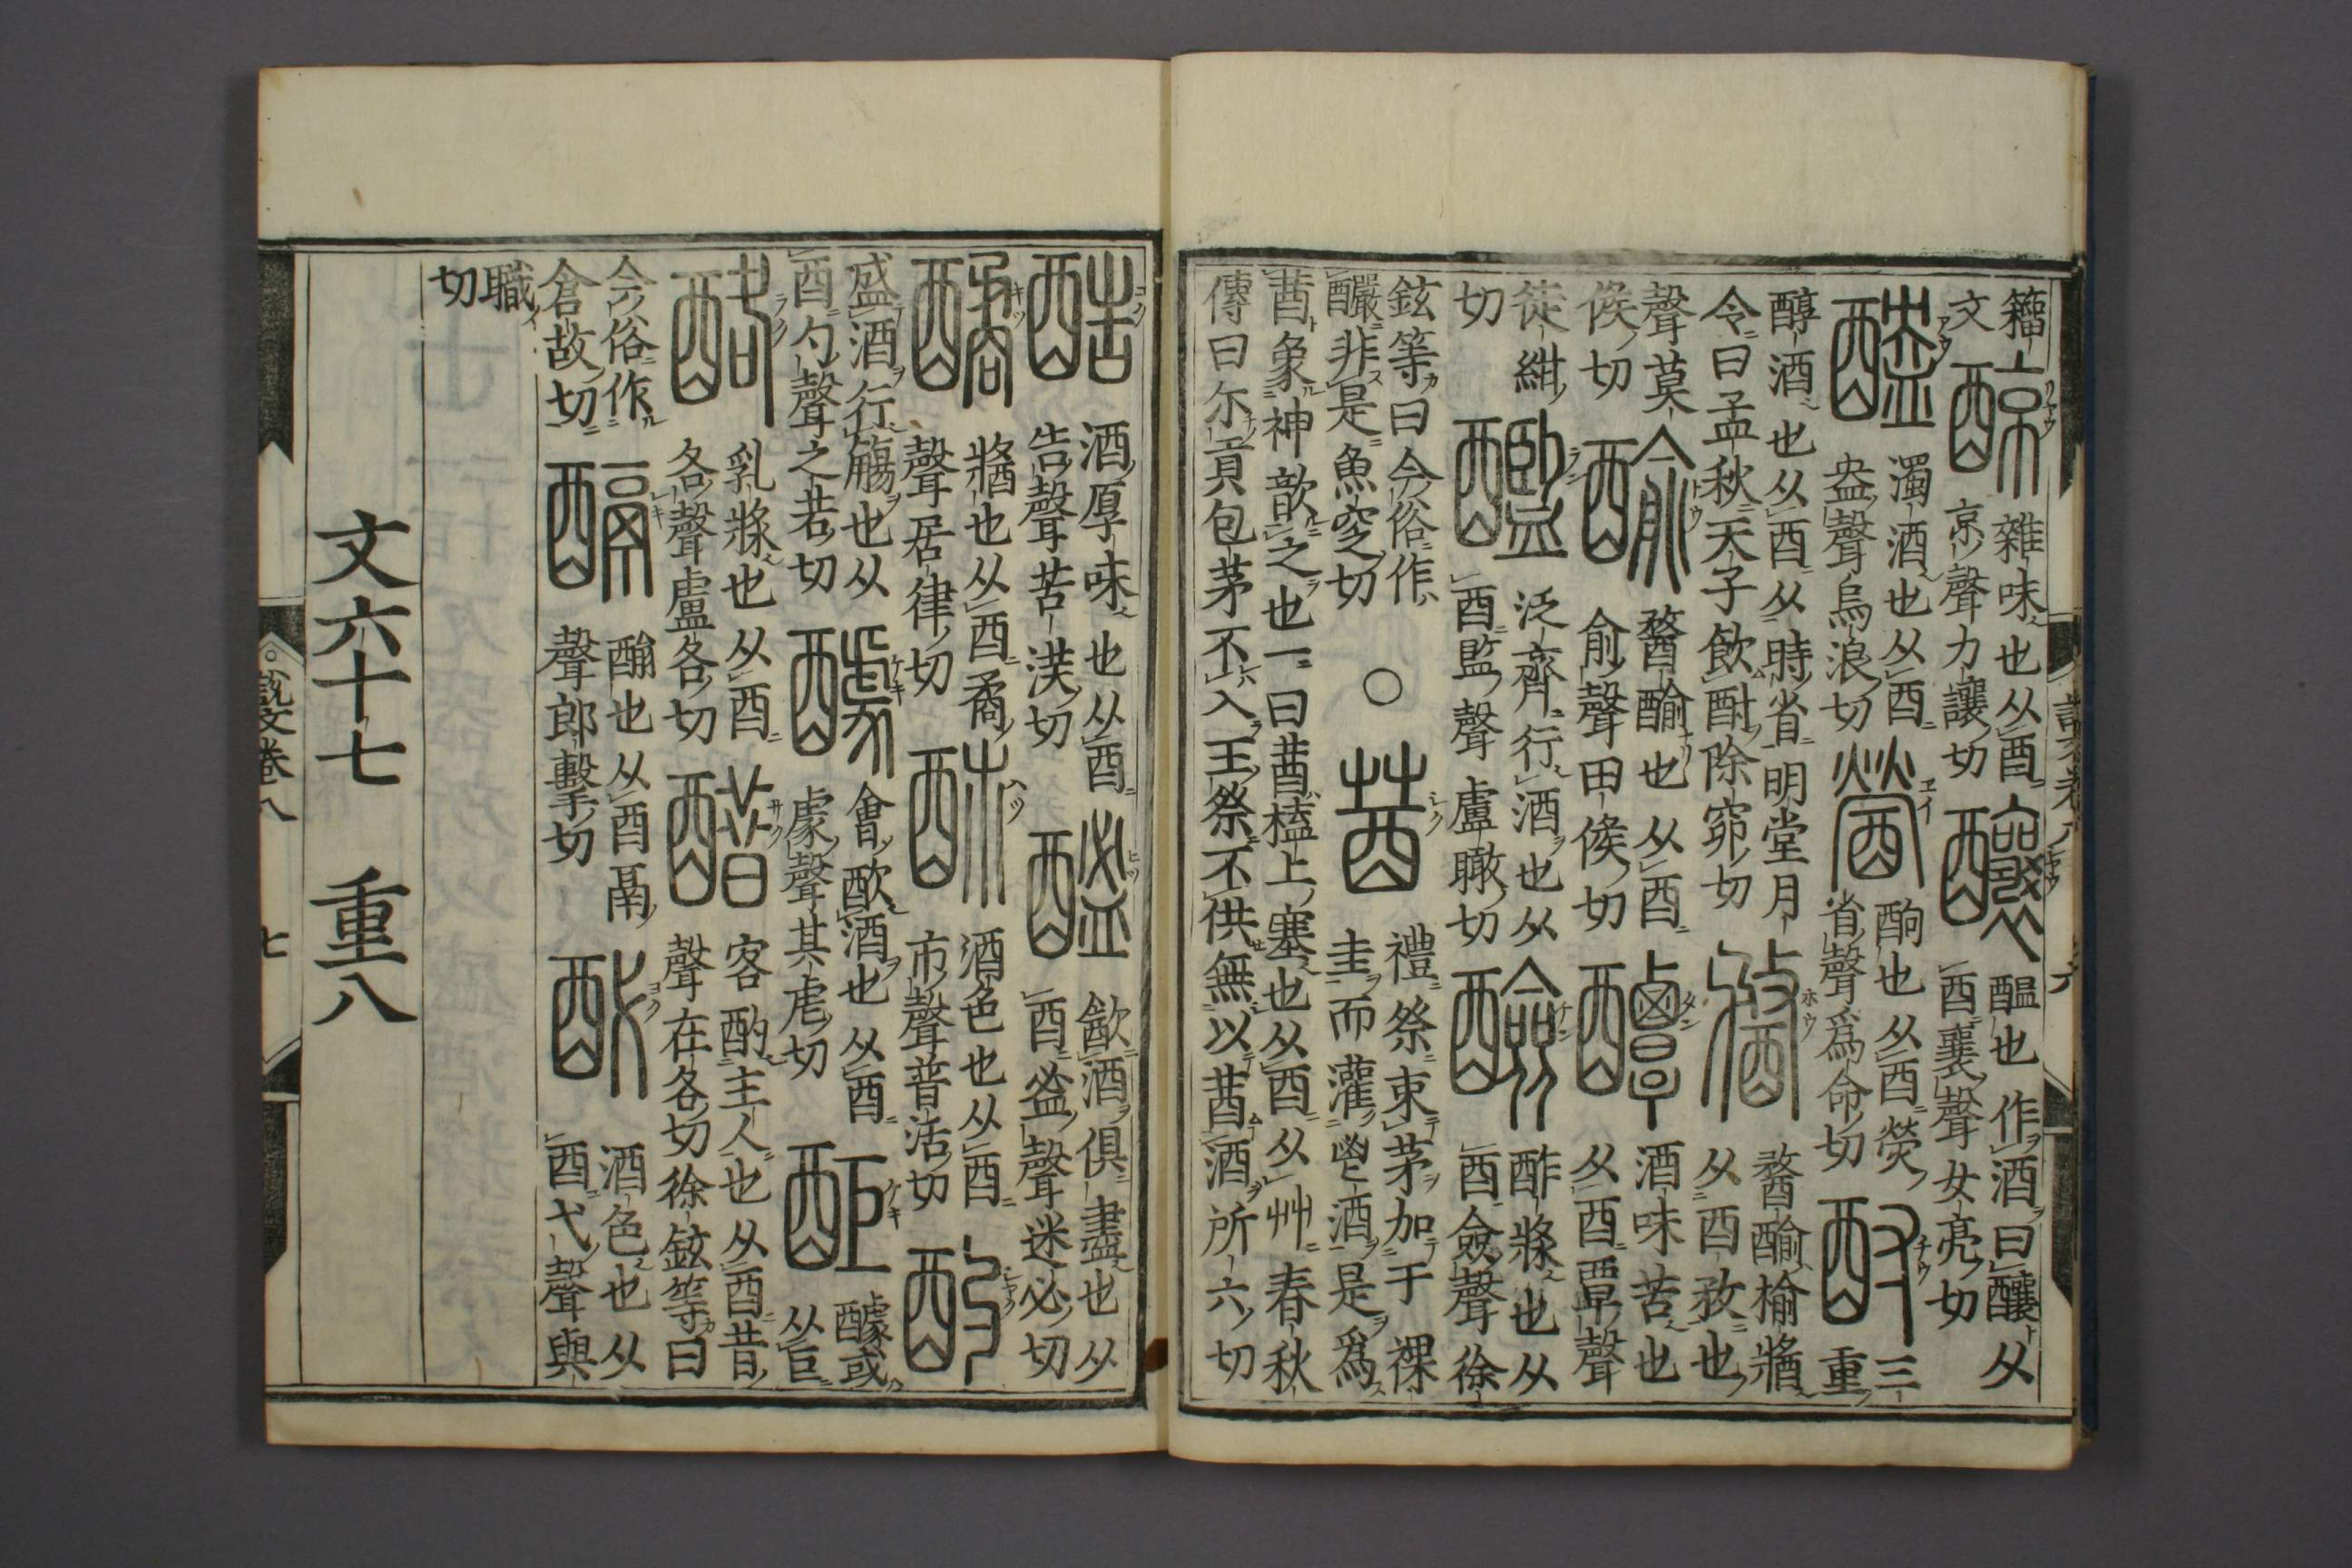 籒雜味也从酉
文 京聲力讓切
釀
醖也作酒曰釀从
酉襄聲女亮切
醠
濁酒也从酉
盎聲烏浪切
醟
酌也从酉熒
省聲爲命切
酎
三
重
醇酒也从酉从時省明堂月
令曰孟秋天子飲酎除丣切
𨡭
𨡭䤅榆牆
从酉敄也
聲莫
候切
䤅
𨡭䤅也从酉
俞聲田候切
醰
酒味苦也
从酉覃聲
徒紺
切
泛齊行酒也从
酉監聲盧瞰切
醶
酢牆也从
酉僉聲徐
鉉等曰今俗作
釅非是魚窆切
○
莤
禮祭束茅加于祼
圭而灌鬯酒是爲
莤象神歆之也一曰莤榼上塞也从酉从艸春秋
傳曰尔貢包茅不入王祭不供無以莤酒所六切
說文卷八 六
酷
酒厚味也从酉
告聲苦沃切
㱃酒俱盡也从
酉𥁑聲迷必切
牆也从酉矞
聲居律切
酒色也从酉
巿聲普活切
酌
盛酒行觴也从
酉勺聲之若切
醵
會㱃酒也从酉
豦聲其虐切
醵或
从巨
酪
乳牆也从酉
各聲盧各切
醋
客酌主人也从酉昔
聲在各切徐鉉等曰
今俗作
倉故切
也从酉鬲
聲郎擊切
酒色也从
酉弋聲與
職
切
文六十七 重八
說文卷八 七